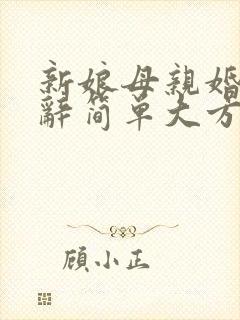 新娘母親婚
辭简單大方
顧小正